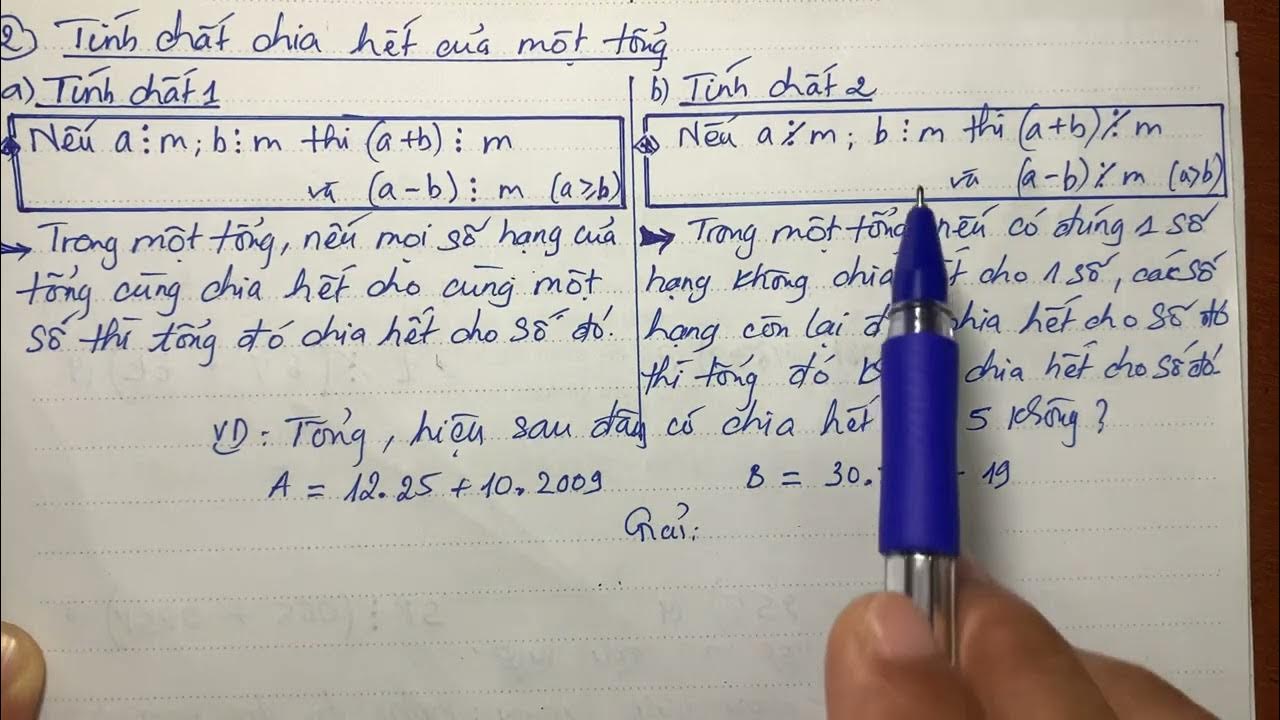 2) Tính chất chia hết của một tổng
a) Tính chất 1
Nếu a ⋮ m ; b ⋮ m thì (a+b) ⋮ m
và (a-b) ⋮ m (a≥b)
Trong một tổng, nếu mọi số hạng của
tổng cùng chia hết cho cùng một
số thì tổng đó chia hết cho số đó.
b) Tính chất 2
Nếu a ⋮̸ m ; b ⋮ m thì (a+b) ⋮̸ m
và (a-b) ⋮̸ m (a>b)
Trong một tổng nếu có đúng 1 số
hạng không chia cho 1 số, các số
hạng còn lại chia hết cho số đó
thì tổng đó chia hết cho số đó
VD: Tổng, hiệu sau đây có chia hết 5 không?
A = 12.25 + 10.2009
B = 30. - 19
Giải: